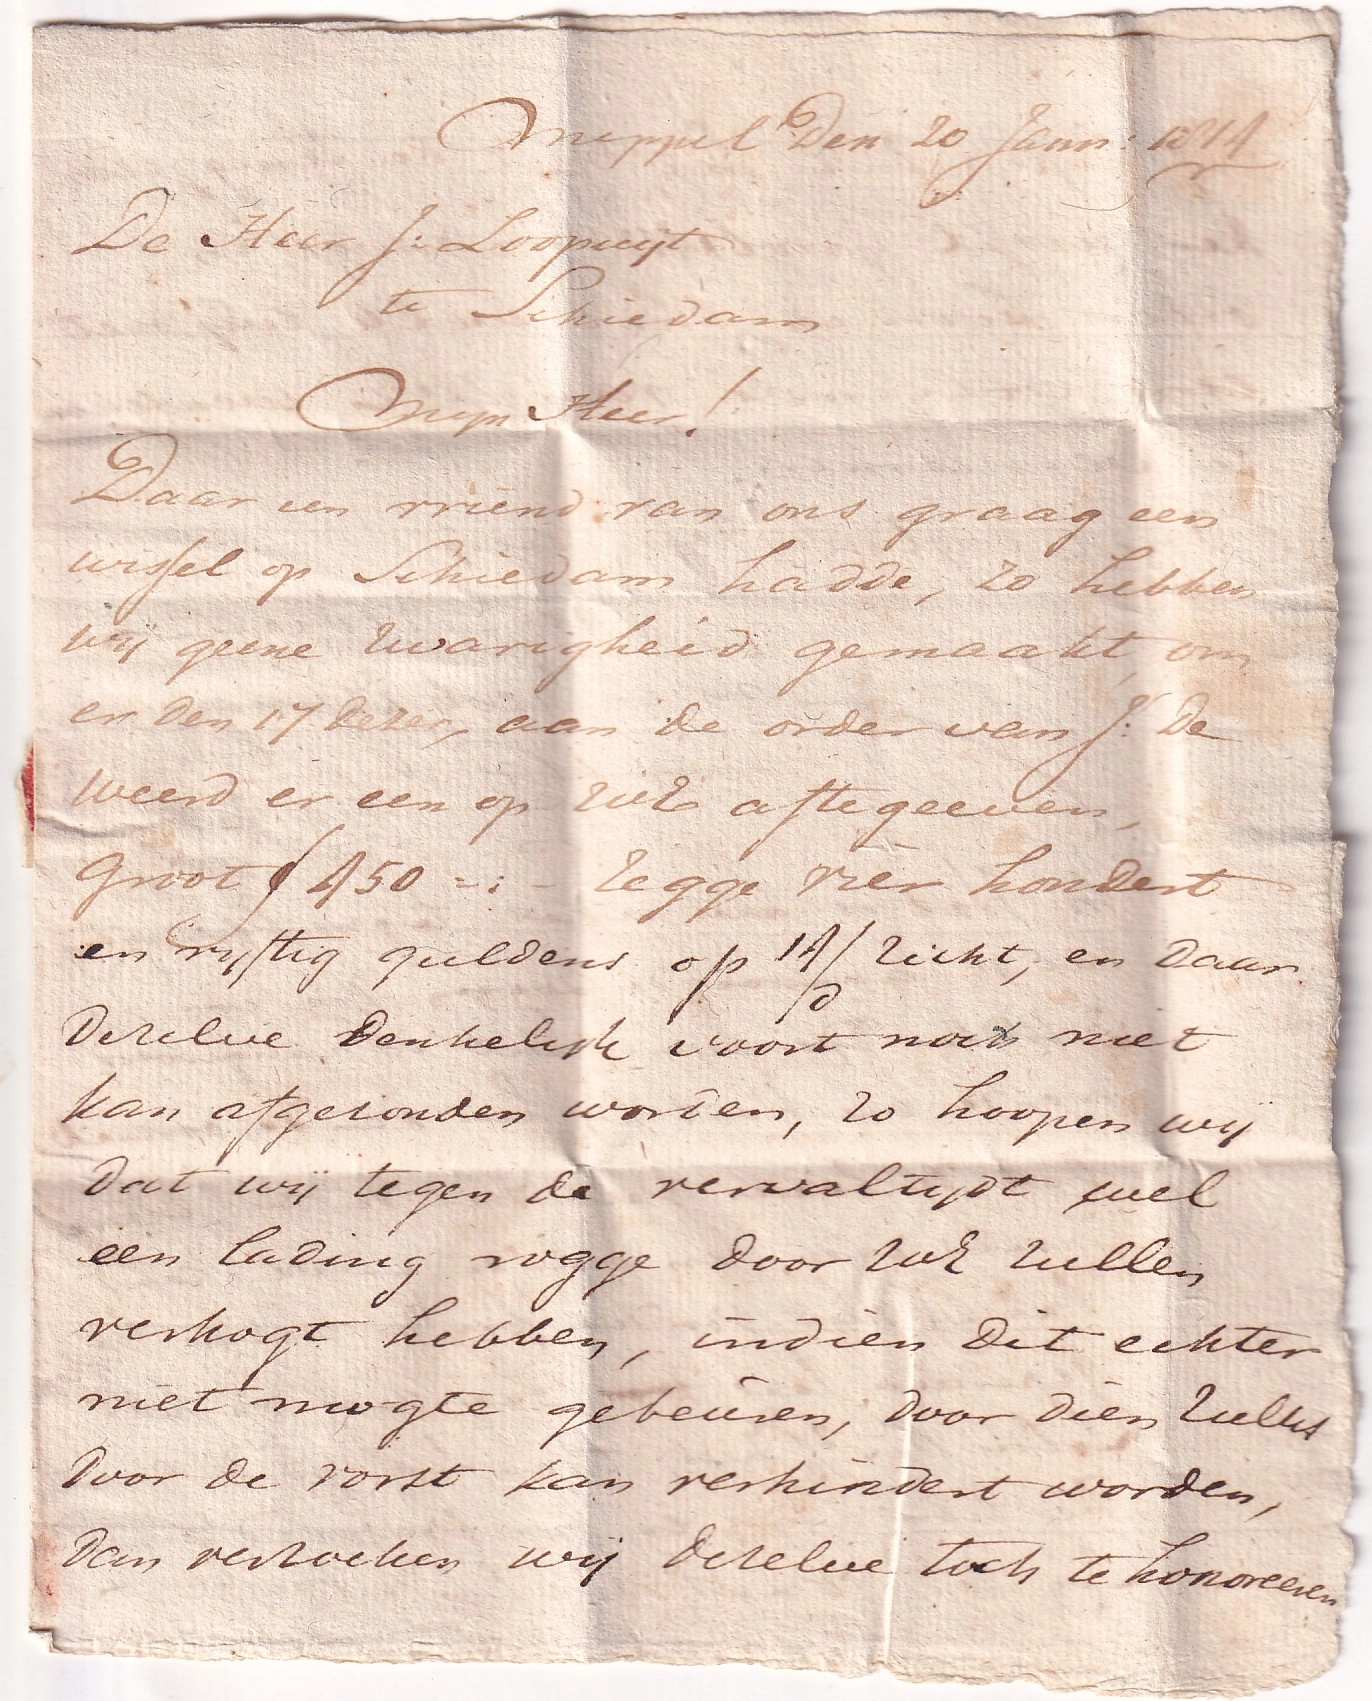 Meppel Den 20 Janu: 1814
De Heer J: Loopuyt
te Schiedam
Myn Heer!
Daar een vriend van ons graag een
wissel op Schiedam hadde, zo hebben
wij geene zwarigheid gemaakt, om
er den 17 dezer, aan de order van J: De
Weerd er een op UwE afte geeven,
Groot ƒ 450 =:- zegge vier hondert
en vyftig guldens op 14/d zicht, en daar
dezelve denkelyk voort noch niet
kan afgezonden worden, zo hoopen wij
dat wij tegen de vervaltydt wel
een lading rogge door UwE zullen
verkogt hebben, indien dit echter
niet mogte gebeuren, door dien zulks
door de vorst kan verhindert worden,
dan verzoeken wij dezelve toch te honoreeren